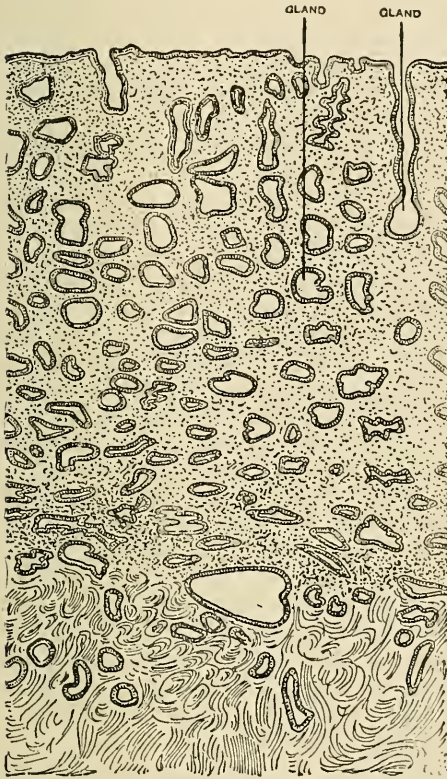 GLAND GLAND